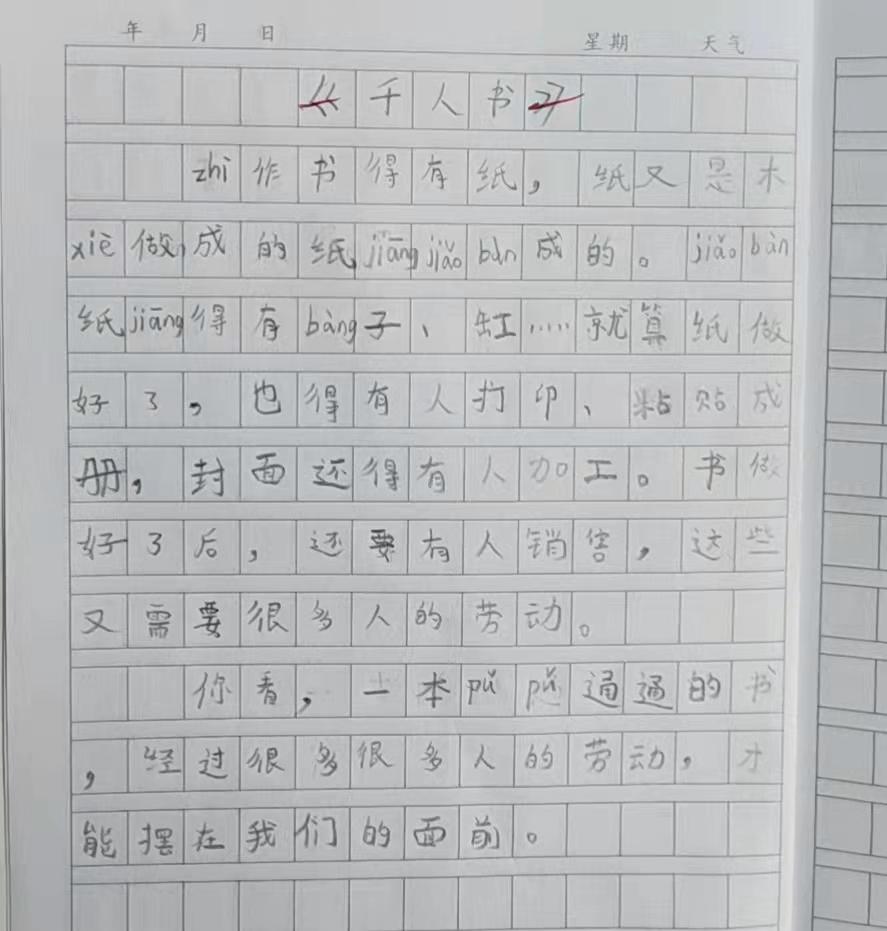 年 月 日 星期 天气
《千人书》
zhì作书得有纸，纸又是木
xiè做成的纸jiāngjiǎobàn成的。jiǎobàn
纸jiāng得有bàng子、缸……就算纸做
好了，也得有人打印、粘贴成
册，封面还得有人加工。书做
好了后，还要有人销售，这些
又需要很多人的劳动。
你看，一本pǔpǔ通通的书
，经过很多很多人的劳动，才
能摆在我们的面前。